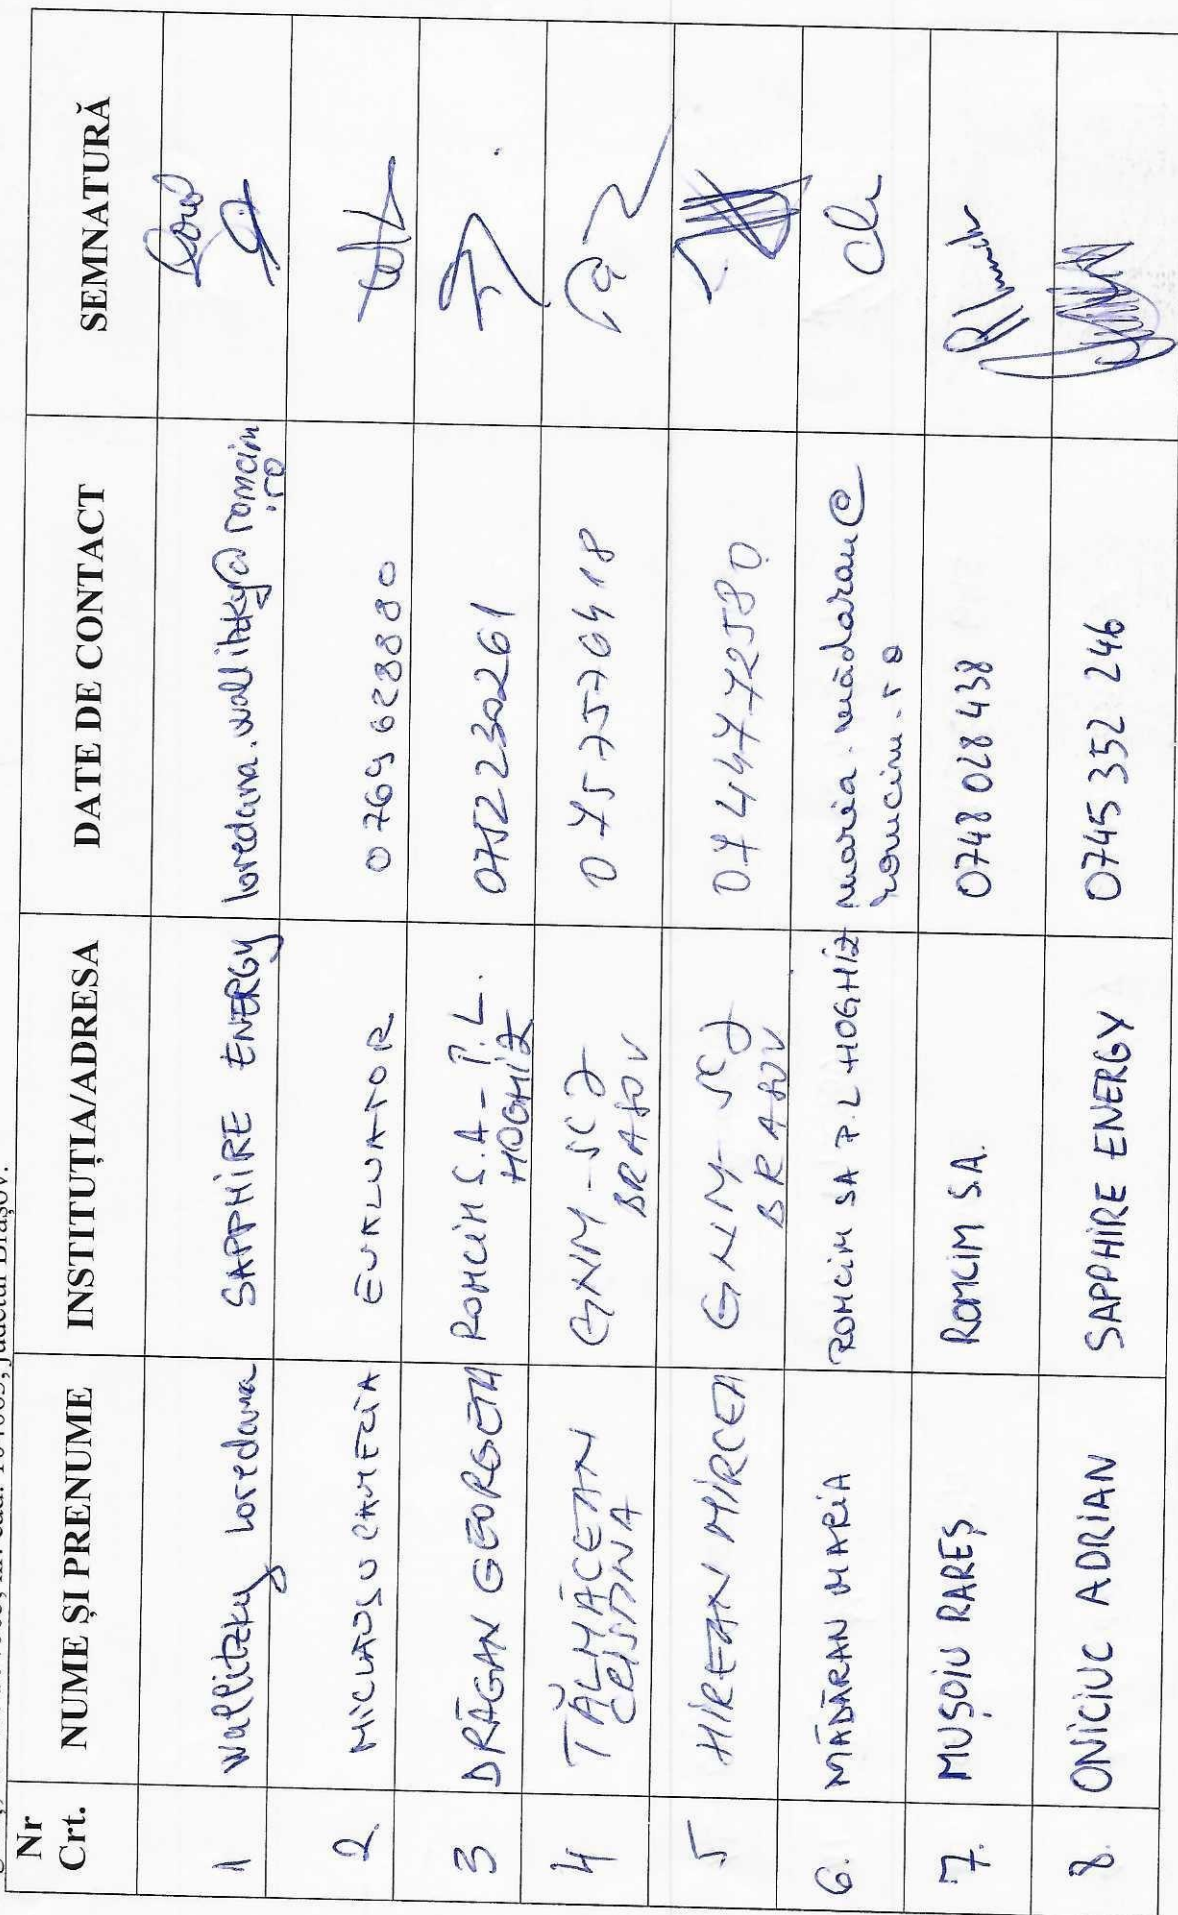 județul Brașov.
Nr Crt. NUME ȘI PRENUME INSTITUȚIA/ADRESA DATE DE CONTACT SEMNATURĂ
1 Wallitzky Loredana SAPPHIRE ENERGY loredana.wallitzky@romcim.ro
2. MICLĂUȘU CAMELIA EVALUATOR 0769628880
3 DRĂGAN GEORGETA ROMCIM S.A - P.L. HOGHIZ 0752230261
4 TĂLMĂCEAN CRISTINA GNM - SCJ BRASOV 0757576418
5 HIREAN MIRCEA GNM - SCJ BRASOV 0744472580
6. MĂDĂRAN MARIA ROMCIM SA P.L HOGHIZ maria.mădăran@romcim.ro
7. MUȘOIU RAREȘ ROMCIM S.A. 0748 028 438
8. ONICIUC ADRIAN SAPPHIRE ENERGY 0745 352 246